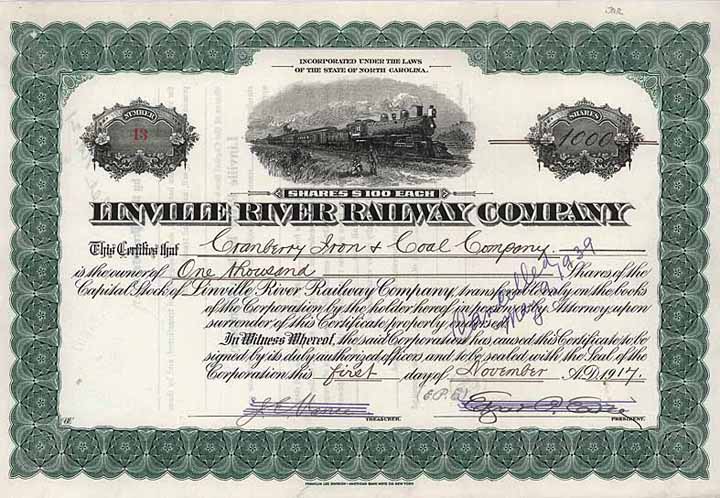 INCORPORATED UNDER THE LAWS
OF THE STATE OF NORTH CAROLINA.
NUMBER
13
SHARES
1000
SHARES $100 EACH
LINVILLE RIVER RAILWAY COMPANY
This Certifies that Cranberry Iron & Coal Company.
is the owner of One thousand Shares of the
Capital Stock of Linville River Railway Company, transferable only on the books
of the Corporation by the holder hereof in person or by Attorney, upon
surrender of this Certificate properly endorsed.
Cancelled
1939
In Witness Whereof, the said Corporation has caused this Certificate to be
signed by its duly authorized officers, and to be sealed with the Seal of the
Corporation this first day of November A.D. 1917.
TREASURER.
PRESIDENT.
FRANKLIN LEE DIVISION - AMERICAN BANK NOTE CO. NEW YORK